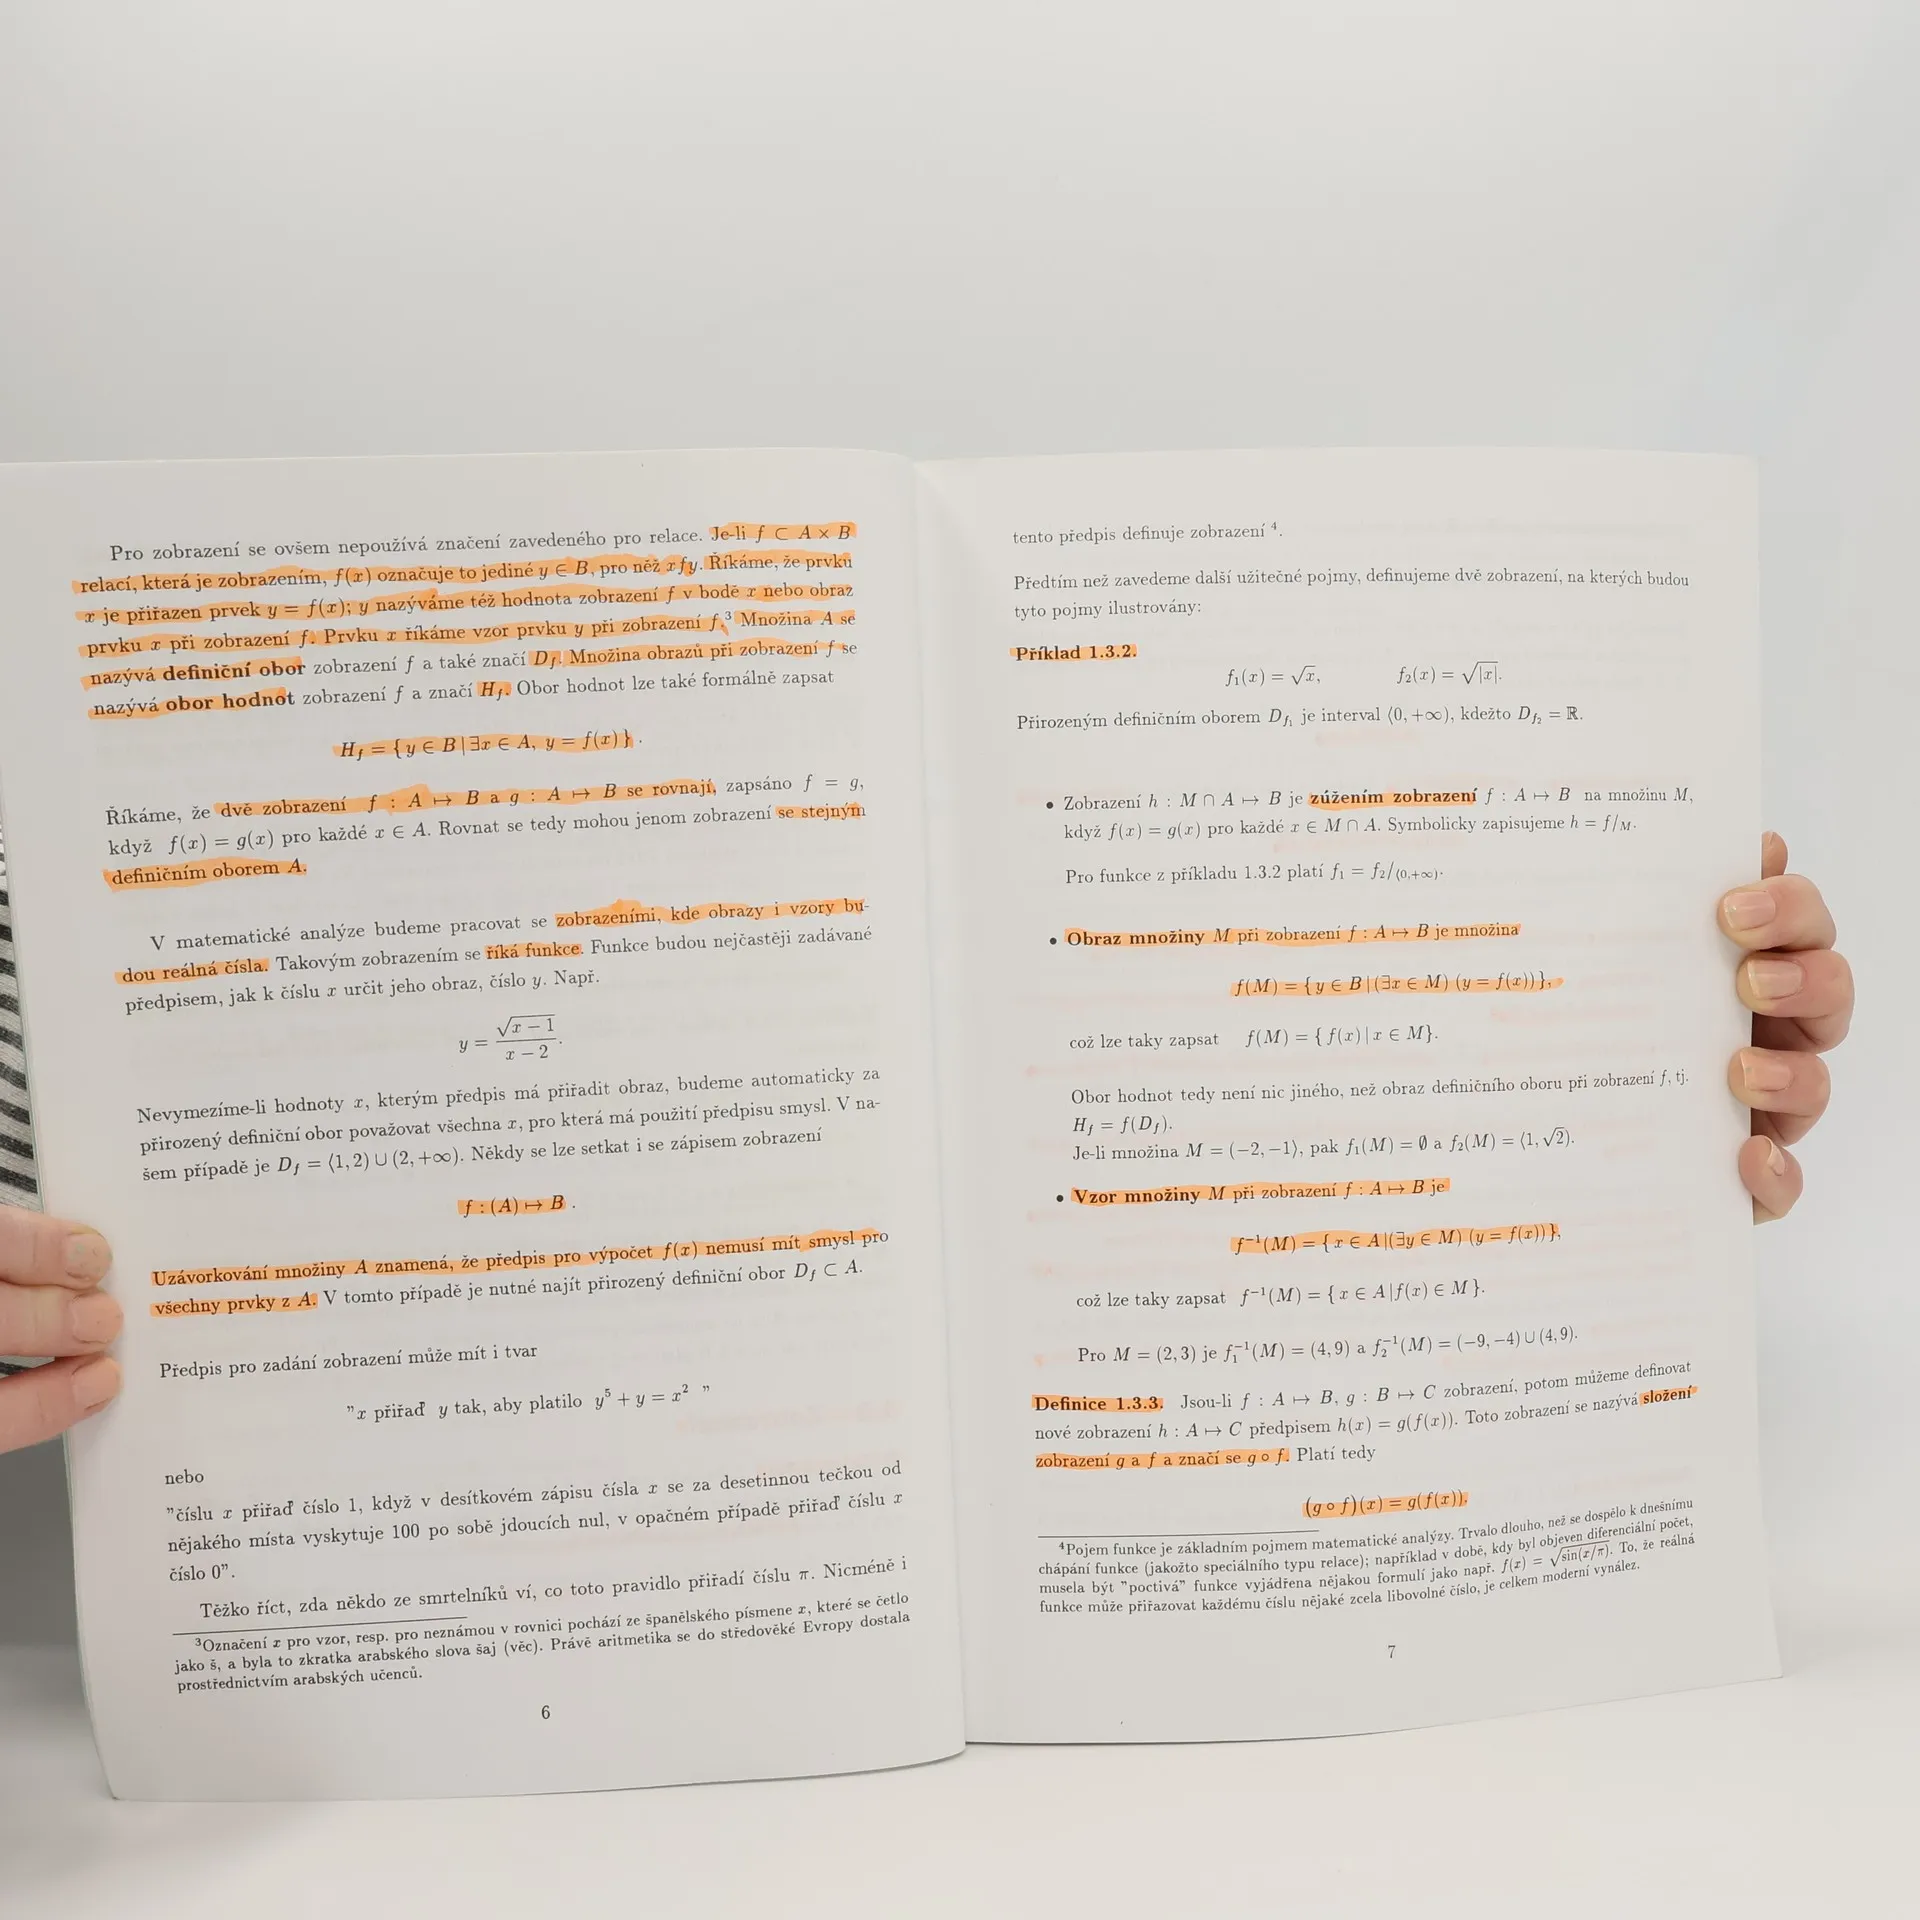 Pro zobrazení se ovšem nepoužívá značení zavedeného pro relace. Je-li f ⊂ A × B
relací, která je zobrazením, f(x) označuje to jediné y ∈ B, pro něž xfy. Říkáme, že prvku
x je přiřazen prvek y = f(x); y nazýváme též hodnota zobrazení f v bodě x nebo obraz
prvku x při zobrazení f. Prvku x říkáme vzor prvku y při zobrazení f.³ Množina A se
nazývá definiční obor zobrazení f a také značí D_f. Množina obrazů při zobrazení f se
nazývá obor hodnot zobrazení f a značí H_f. Obor hodnot lze také formálně zapsat
H_f = { y ∈ B | ∃x ∈ A, y = f(x) } .
Říkáme, že dvě zobrazení f : A ↦ B a g : A ↦ B se rovnají, zapsáno f = g,
když f(x) = g(x) pro každé x ∈ A. Rovnat se tedy mohou jenom zobrazení se stejným
definičním oborem A.
V matematické analýze budeme pracovat se zobrazeními, kde obrazy i vzory bu-
dou reálná čísla. Takovým zobrazením se říká funkce. Funkce budou nejčastěji zadávané
předpisem, jak k číslu x určit jeho obraz, číslo y. Např.
y = √(x − 1) / (x − 2).
Nevymezíme-li hodnoty x, kterým předpis má přiřadit obraz, budeme automaticky za
přirozený definiční obor považovat všechna x, pro která má použití předpisu smysl. V na-
šem případě je D_f = ⟨1, 2) ∪ (2, +∞). Někdy se lze setkat i se zápisem zobrazení
f : (A) ↦ B .
Uzávorkování množiny A znamená, že předpis pro výpočet f(x) nemusí mít smysl pro
všechny prvky z A. V tomto případě je nutné najít přirozený definiční obor D_f ⊂ A.
Předpis pro zadání zobrazení může mít i tvar
”x přiřaď y tak, aby platilo y⁵ + y = x² ”
nebo
”číslu x přiřaď číslo 1, když v desítkovém zápisu čísla x se za desetinnou tečkou od
nějakého místa vyskytuje 100 po sobě jdoucích nul, v opačném případě přiřaď číslu x
číslo 0”.
Těžko říct, zda někdo ze smrtelníků ví, co toto pravidlo přiřadí číslu π. Nicméně i
³Označení x pro vzor, resp. pro neznámou v rovnici pochází ze španělského písmene x, které se četlo
jako š, a byla to zkratka arabského slova šaj (věc). Právě aritmetika se do středověké Evropy dostala
prostřednictvím arabských učenců.
6
tento předpis definuje zobrazení ⁴.
Předtím než zavedeme další užitečné pojmy, definujeme dvě zobrazení, na kterých budou
tyto pojmy ilustrovány:
Příklad 1.3.2.
f₁(x) = √x, f₂(x) = √|x|.
Přirozeným definičním oborem D_f₁ je interval ⟨0, +∞), kdežto D_f₂ = ℝ.
• Zobrazení h : M ∩ A ↦ B je zúžením zobrazení f : A ↦ B na množinu M,
když f(x) = g(x) pro každé x ∈ M ∩ A. Symbolicky zapisujeme h = f/_M.
Pro funkce z příkladu 1.3.2 platí f₁ = f₂/⟨0,+∞).
• Obraz množiny M při zobrazení f : A ↦ B je množina
f(M) = { y ∈ B | (∃x ∈ M) (y = f(x)) },
což lze taky zapsat f(M) = { f(x) | x ∈ M}.
Obor hodnot tedy není nic jiného, než obraz definičního oboru při zobrazení f, tj.
H_f = f(D_f).
Je-li množina M = (−2, −1⟩, pak f₁(M) = ∅ a f₂(M) = ⟨1, √2).
• Vzor množiny M při zobrazení f : A ↦ B je
f⁻¹(M) = { x ∈ A |(∃y ∈ M) (y = f(x)) },
což lze taky zapsat f⁻¹(M) = { x ∈ A |f(x) ∈ M }.
Pro M = (2, 3) je f₁⁻¹(M) = (4, 9) a f₂⁻¹(M) = (−9, −4) ∪ (4, 9).
Definice 1.3.3. Jsou-li f : A ↦ B, g : B ↦ C zobrazení, potom můžeme definovat
nové zobrazení h : A ↦ C předpisem h(x) = g(f(x)). Toto zobrazení se nazývá složení
zobrazení g a f a značí se g ∘ f. Platí tedy
(g ∘ f)(x) = g(f(x)).
⁴Pojem funkce je základním pojmem matematické analýzy. Trvalo dlouho, než se dospělo k dnešnímu
chápání funkce (jakožto speciálního typu relace); například v době, kdy byl objeven diferenciální počet,
musela být ”poctivá” funkce vyjádřena nějakou formulí jako např. f(x) = √sin(x/π). To, že reálná
funkce může přiřazovat každému číslu nějaké zcela libovolné číslo, je celkem moderní vynález.
7